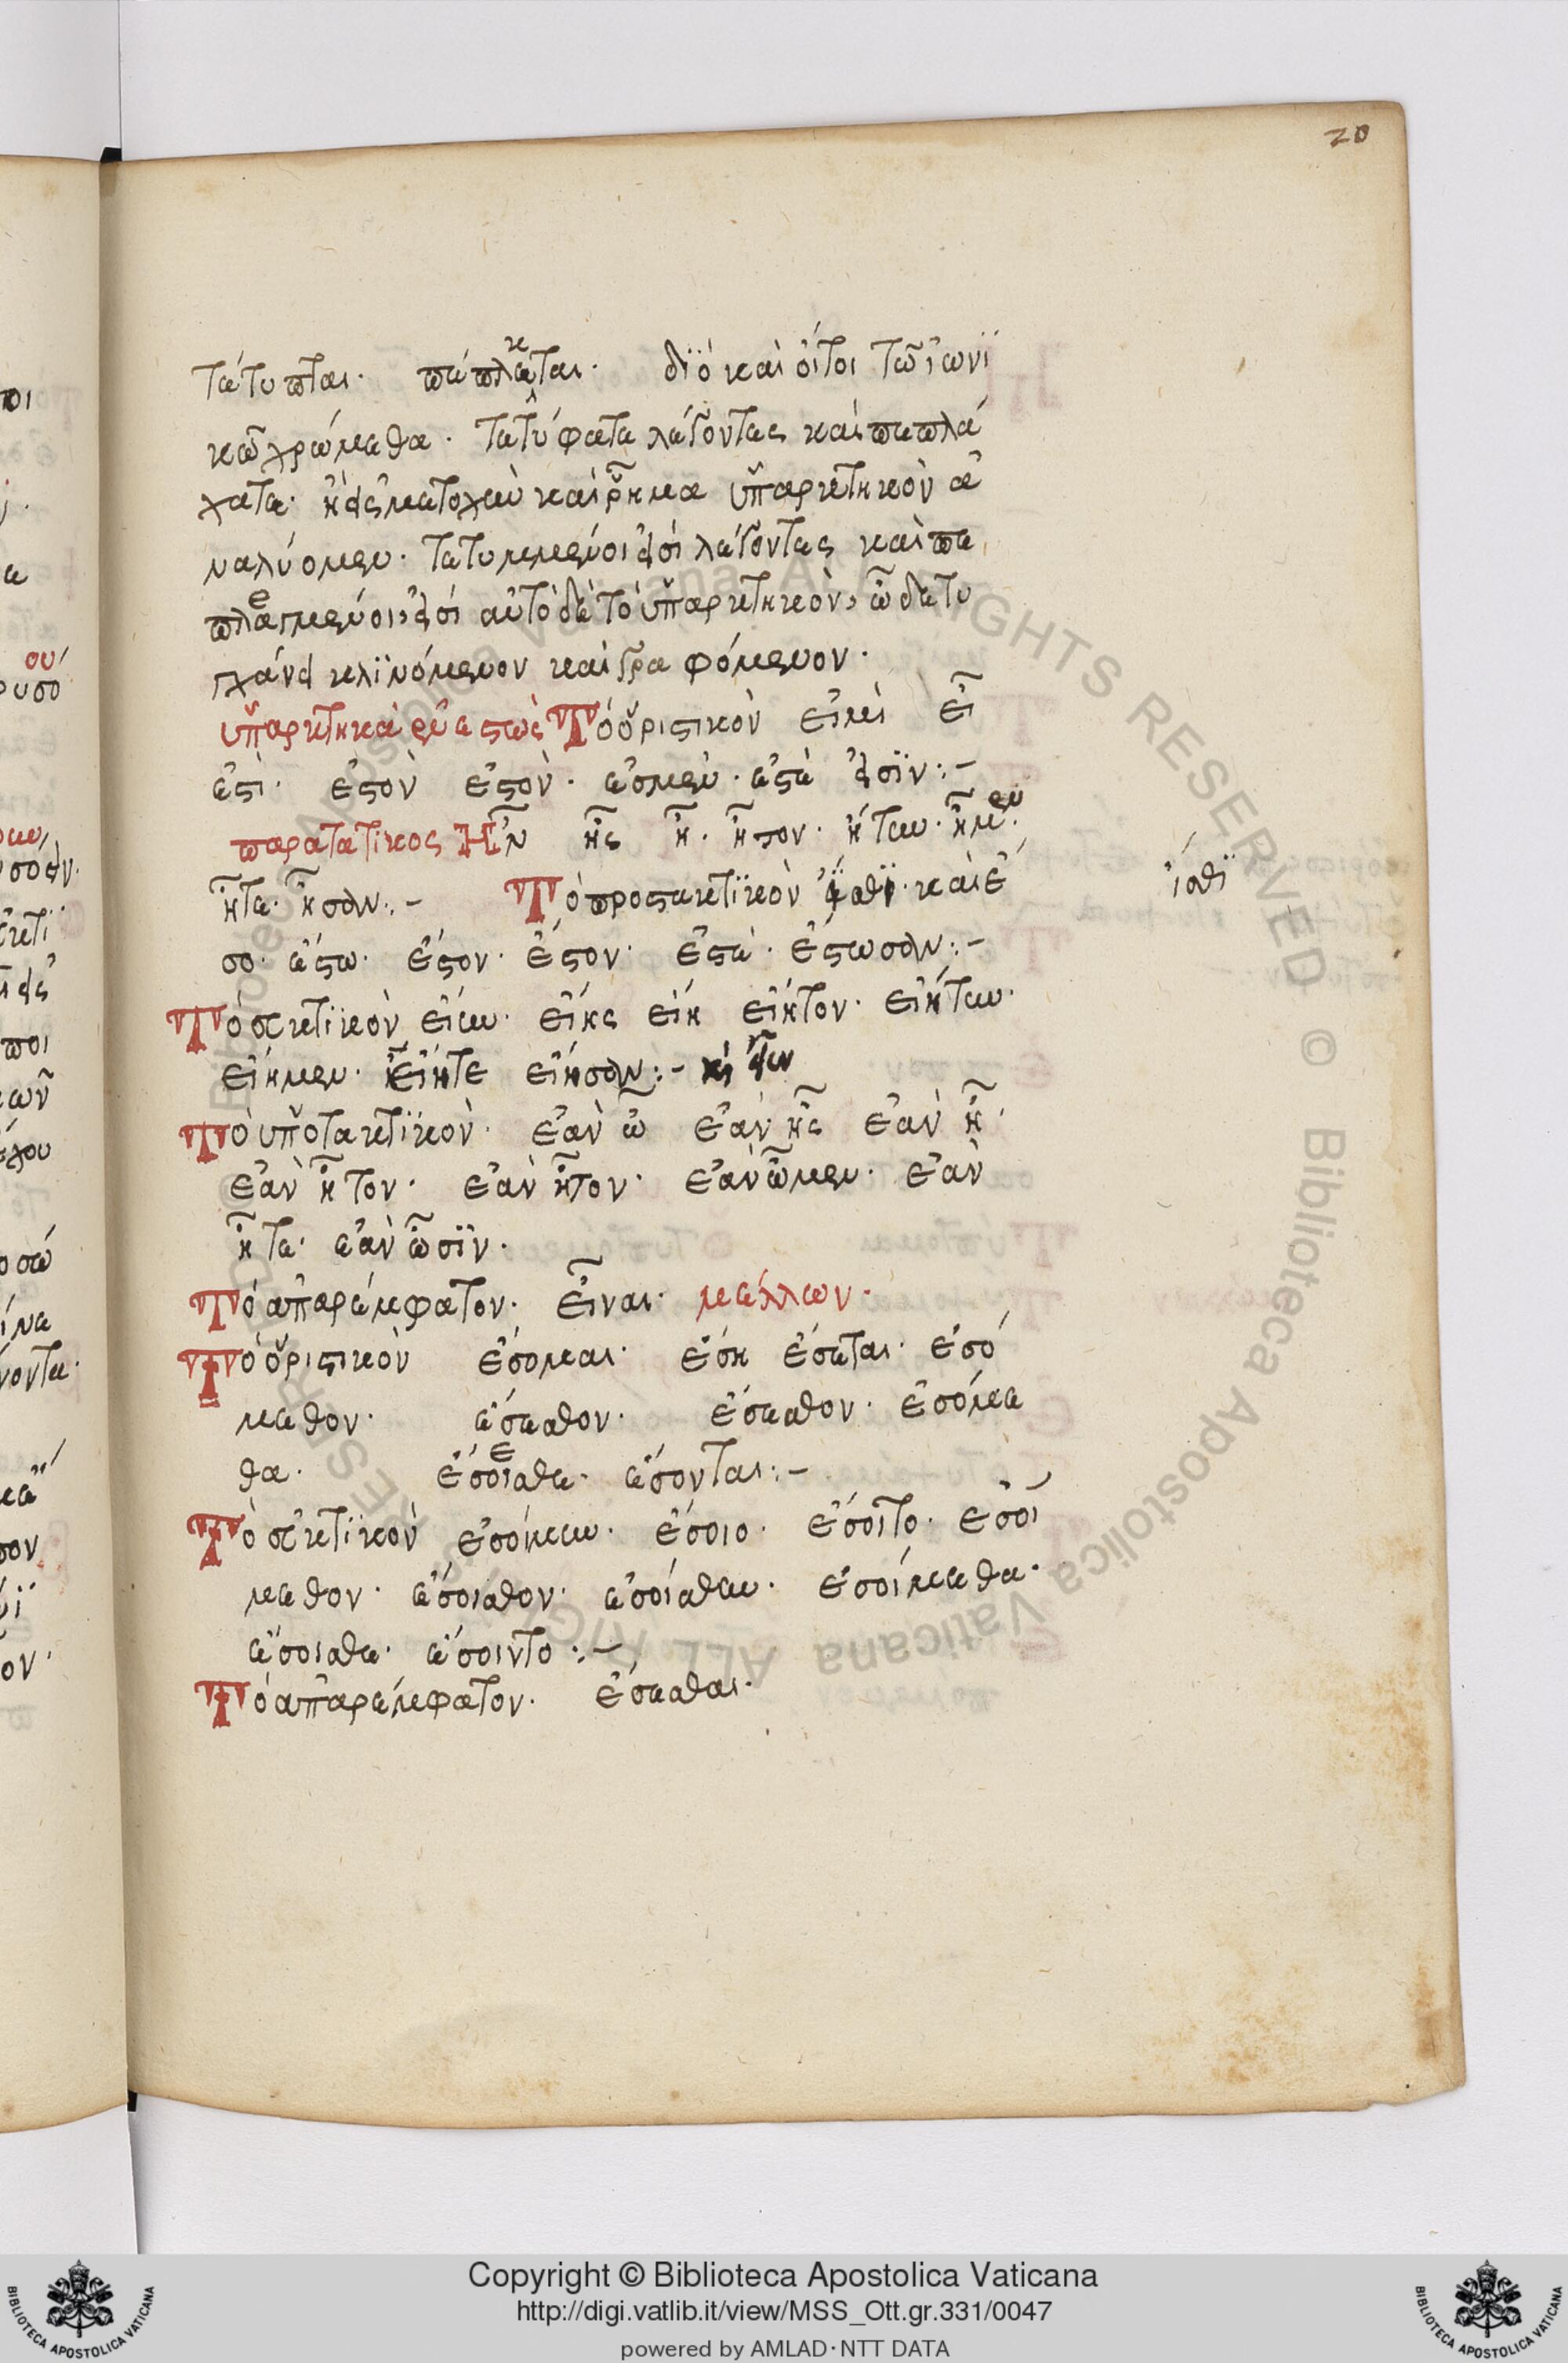 20
τέτυπται· πέπλεκται· διὸ καὶ ὅτοι τῶ ἰωνι
κῶ χρώμεθα· τετύφατε λέγοντες καὶ πεπλέ
χατε· ἢ εἰς μετοχὴν καὶ ῥῆμα ὑπαρκτηκὸν ἀ
ναλύομεν· τετυμμένοι εἰσὶ λέγοντες καὶ πε
πλεγμένοι εἰσὶ αὐτὸ δὲ τὸ ὑπαρκτηκὸν, ὧδε τυ
γχάνει κλινόμενον καὶ γραφόμενον·
ὑπαρκτηκὰ ἐνεστὼς Τὸ ὁριστικὸν εἰμὶ εἶ
ἐστὶ· ἐστὸν ἐστὸν· ἐσμὲν· ἐστὲ εἰσῒν:-
παρατατικος Ἦν ἦς ἦ· ἦτον· ἤτην· ἦμεν·
ἦτε· ἦσαν:- Τὸ προστακτικὸν ἴσθι· καὶ ἔ
σο· ἔστω· ἔστον· ἔστον· ἐστὲ· ἔστωσαν:-
ἴσθϊ
Τὸ εὐκτικὸν εἴην· εἴης εἴη εἴητον· εἰήτην·
εἴημεν· εἴητε εἴησαν:-
Τὸ ὑποτακτικὸν· ἐὰν ὦ ἐὰν ἦς ἐὰν ἦ·
ἐὰν ἦτον· ἐὰν ἦτον· ἐὰν ὦμεν· ἐὰν
ἦτε· ἐὰν ὦσϊν·
Τὸ ἀπαρέμφατον· εἶναι· μέλλων·
Τὸ ὁριστικὸν ἔσομαι· ἔση ἔσεται· ἐσό
μεθον· ἔσεσθον· ἔσεσθον· ἐσόμε
θα· ἔσεσθε· ἔσονται:-
Τὸ εὐκτικὸν ἐσοίμην· ἔσοιο· ἔσοιτο· ἐσοί
μεθον· ἔσοισθον· ἐσοίσθην· ἐσοίμεθα·
ἔσοισθε· ἔσοιντο:-
Τὸ ἀπαρέμφατον· ἔσεσθαι·
Copyright © Biblioteca Apostolica Vaticana
http://digi.vatlib.it/view/MSS_Ott.gr.331/0047
powered by AMLAD·NTT DATA